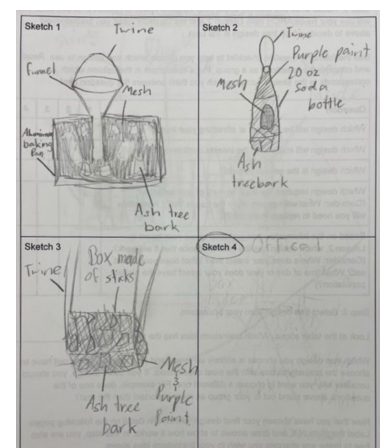 Sketch 1
Twine
Funnel
Mesh
Aluminum
baking
Pan
Ash tree
bark
Sketch 2
Twine
Purple paint
20 oz
soda
bottle
Mesh
Ash
treebark
Sketch 3
Twine
Box made
of sticks
Mesh
&
Purple
Paint
Ash tree
bark
Sketch 4